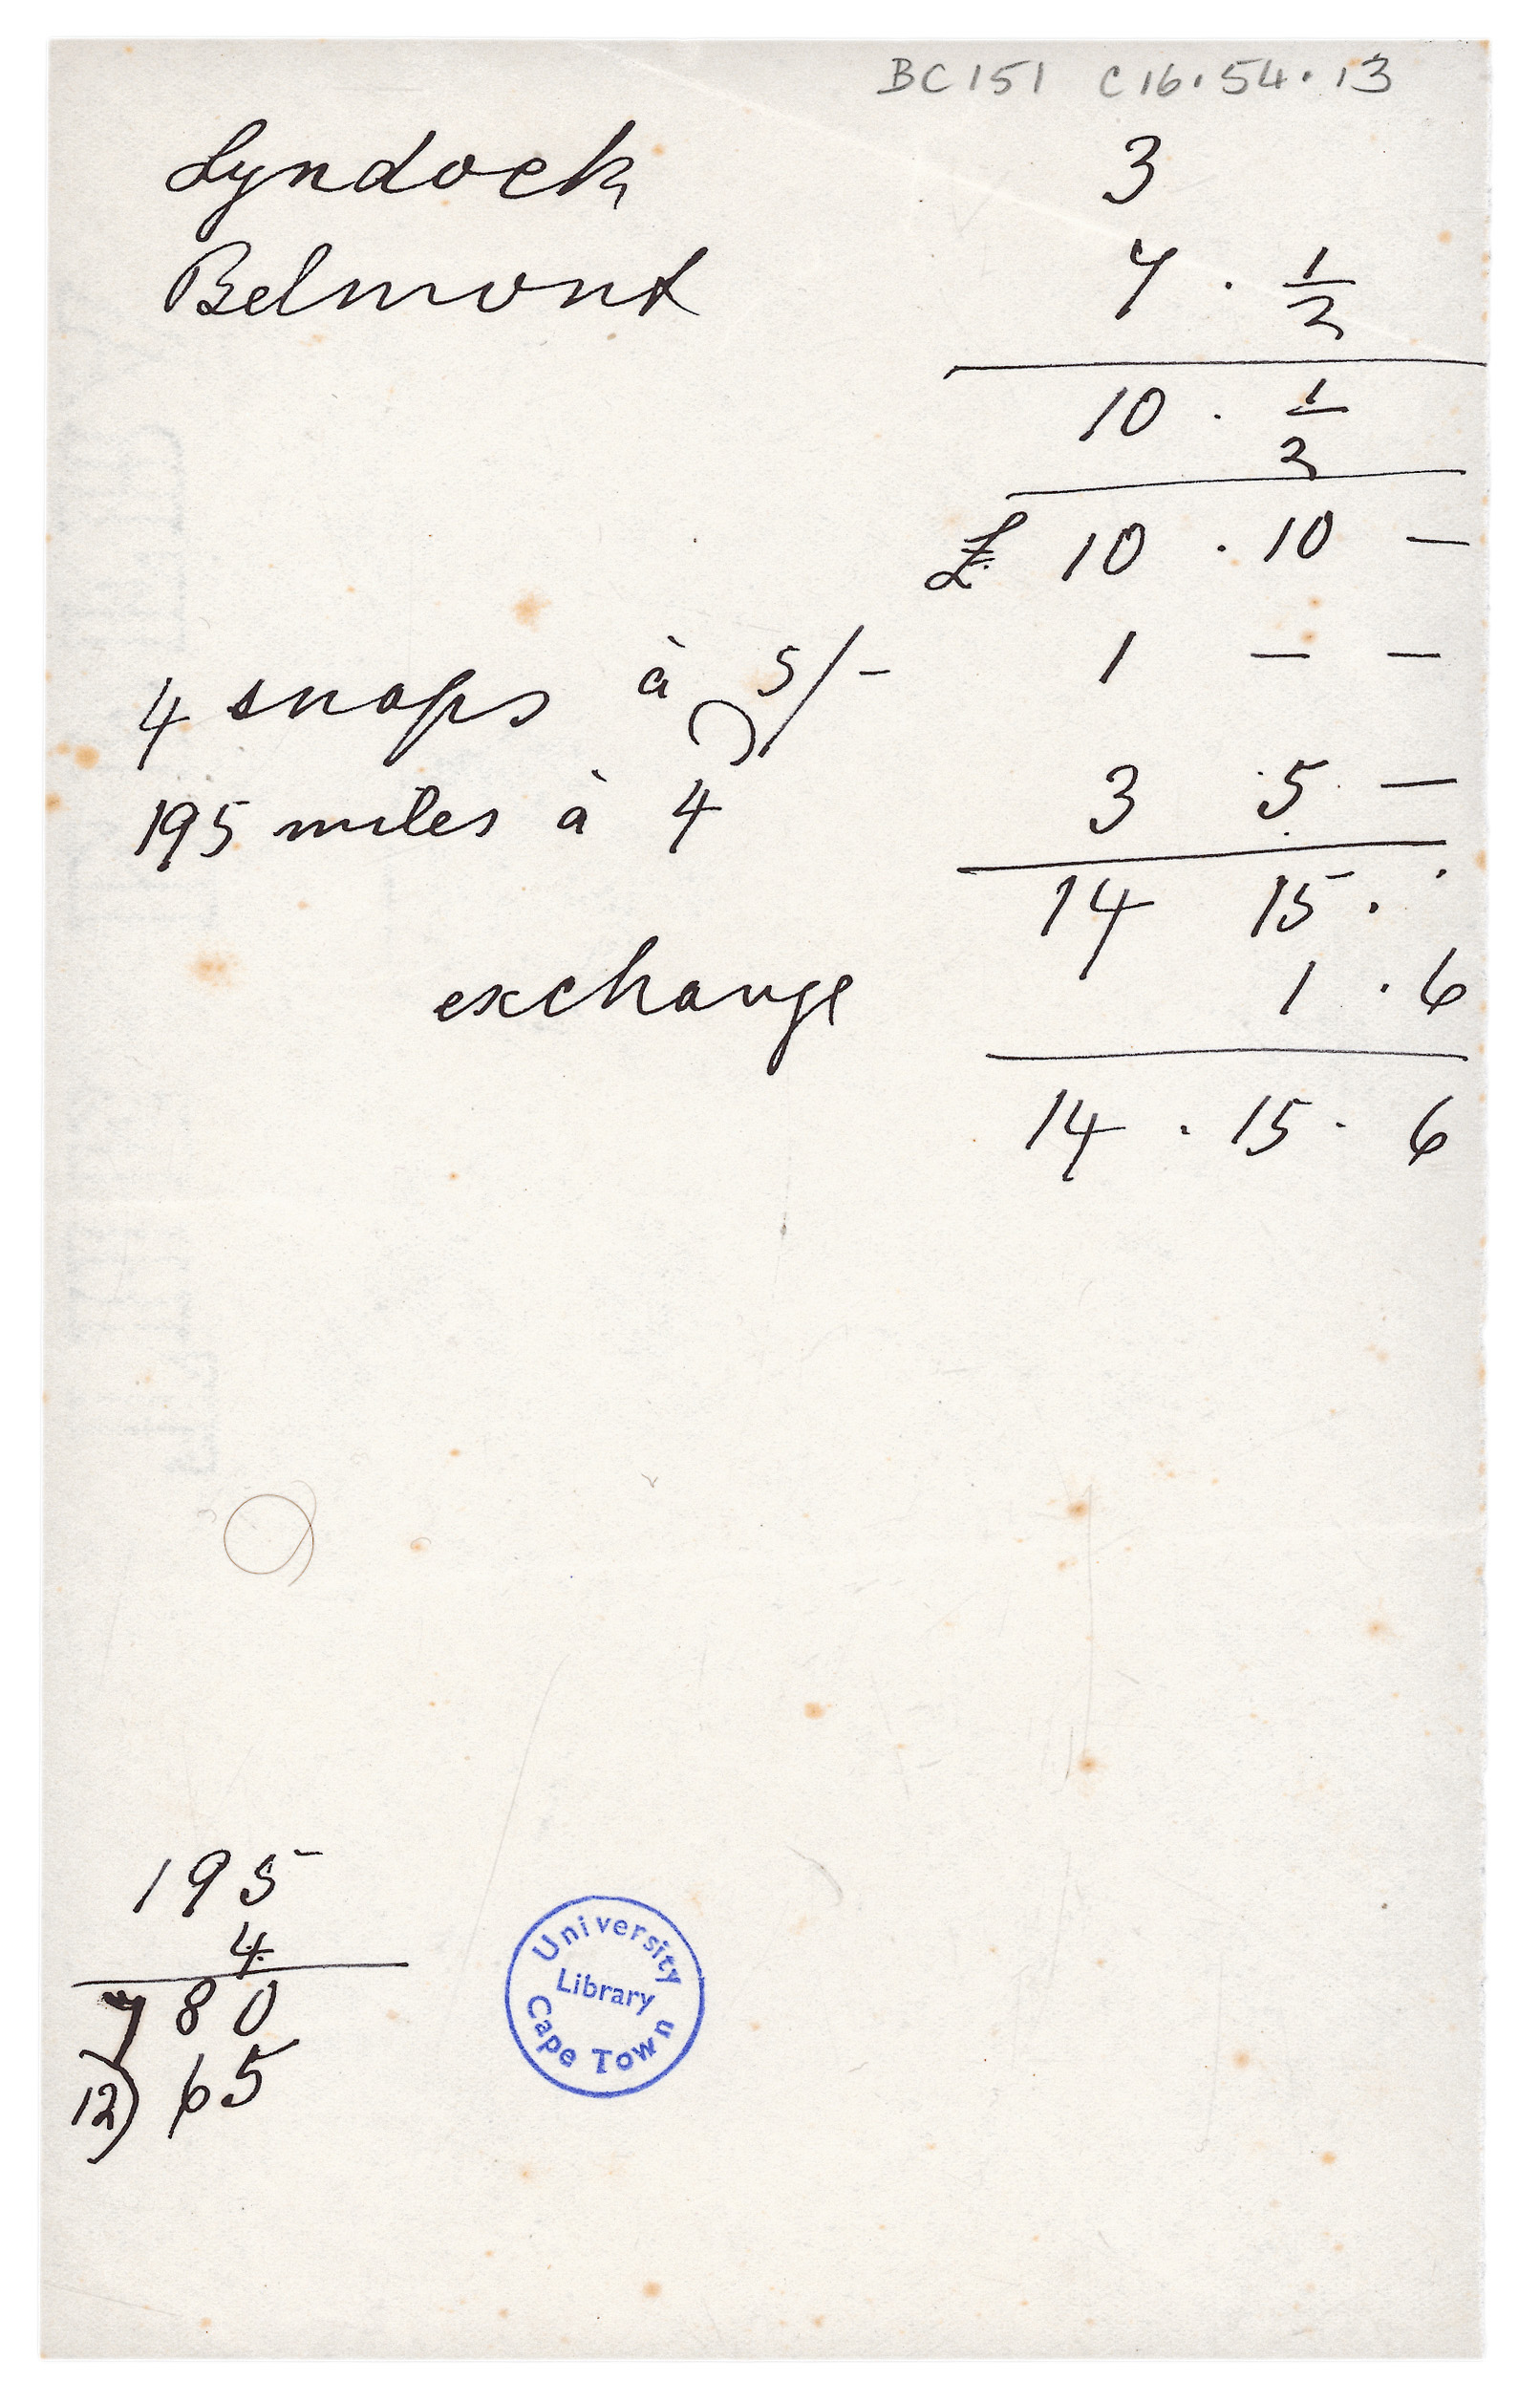 BC151 C16.54.13
Lyndock 3
Belmont 7 . 1/2
10 . 1/2
£ 10 . 10 —
4 snaps à 5/- 1 — —
195 miles à 4 3 . 5 . —
14 15 . .
exchange 1 . 6
14 . 15 . 6
195
4
780
12) 65
University
Library
Cape Town